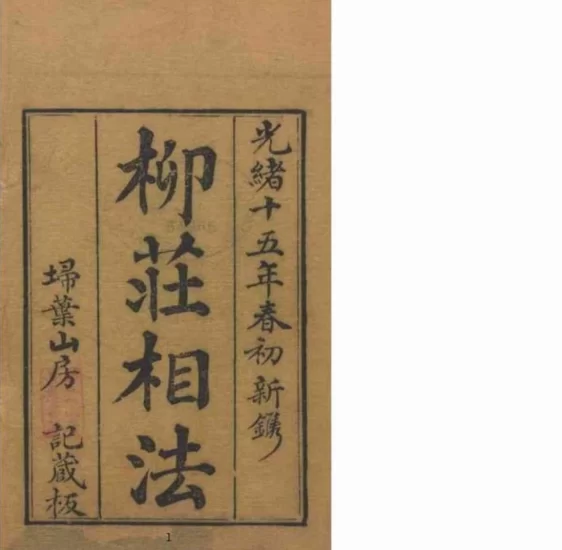 光緒十五年春初新鐫
柳莊相法
埽葉山房 記藏板
1